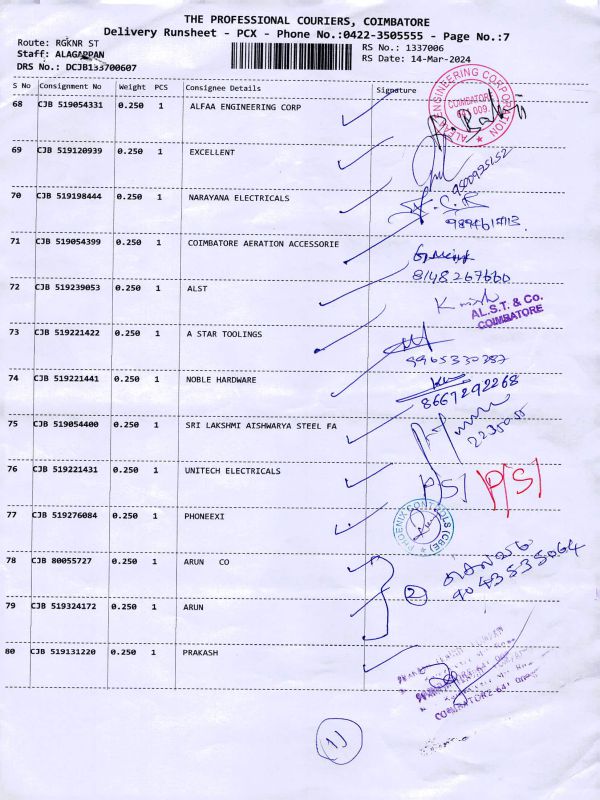 THE PROFESSIONAL COURIERS, COIMBATORE
Delivery Runsheet - PCX - Phone No.:0422-3505555 - Page No.:7
Route: RGKNR ST
RS No.: 1337006
Staff: ALAGAPPAN
RS Date: 14-Mar-2024
DRS No.: DCJB133700607
S No Consignment No Weight PCS Consignee Details Signature
68 CJB 519054331 0.250 1 ALFAA ENGINEERING CORP
ALFAA ENGINEERING CORPORATION
COIMBATORE
641 009.
69 CJB 519120939 0.250 1 EXCELLENT
70 CJB 519198444 0.250 1 NARAYANA ELECTRICALS
71 CJB 519054399 0.250 1 COIMBATORE AERATION ACCESSORIE
8148267660
72 CJB 519239053 0.250 1 ALST
AL.S.T. & Co.
COIMBATORE
73 CJB 519221422 0.250 1 A STAR TOOLINGS
9965330387
74 CJB 519221441 0.250 1 NOBLE HARDWARE
8667292268
75 CJB 519054400 0.250 1 SRI LAKSHMI AISHWARYA STEEL FA
76 CJB 519221431 0.250 1 UNITECH ELECTRICALS
P/S/ P/S/
77 CJB 519276084 0.250 1 PHONEEXI
PHOENIX CONTROLS (CBE)
78 CJB 80055727 0.250 1 ARUN CO
2
9043535064
79 CJB 519324172 0.250 1 ARUN
80 CJB 519131220 0.250 1 PRAKASH